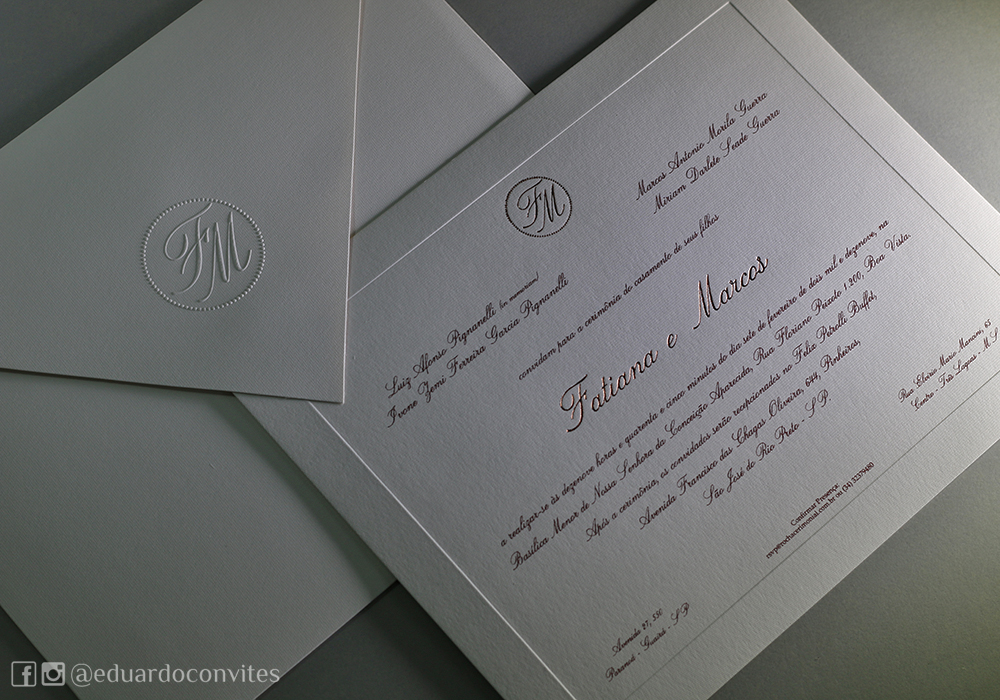 FM
FM
Luiz Afonso Pignanelli (in memoriam)
Ivone Zemi Ferreira Garcia Pignanelli
Marcos Antonio Morila Guerra
Miriam Darlete Seade Guerra
convidam para a cerimônia do casamento de seus filhos
Fatiana e Marcos
a realizar-se às dezenove horas e quarenta e cinco minutos do dia sete de fevereiro de dois mil e dezenove, na
Basílica Menor de Nossa Senhora da Conceição Aparecida, Rua Floriano Peixoto 1.200, Boa Vista.
Após a cerimônia, os convidados serão recepcionados no Feliz Petrolli Buffet,
Avenida Francisco das Chagas Oliveira, 644, Pinheiros,
São José do Rio Preto - S.P.
Avenida 27, 550
Paranoá - Guaíra - S.P.
Confirmar Presença:
rsvp@rochacerimonial.com.br ou (34) 32379480
Rua Elvirio Mario Mancini, 65
Centro - Três Lagoas - M.S.
@eduardoconvites